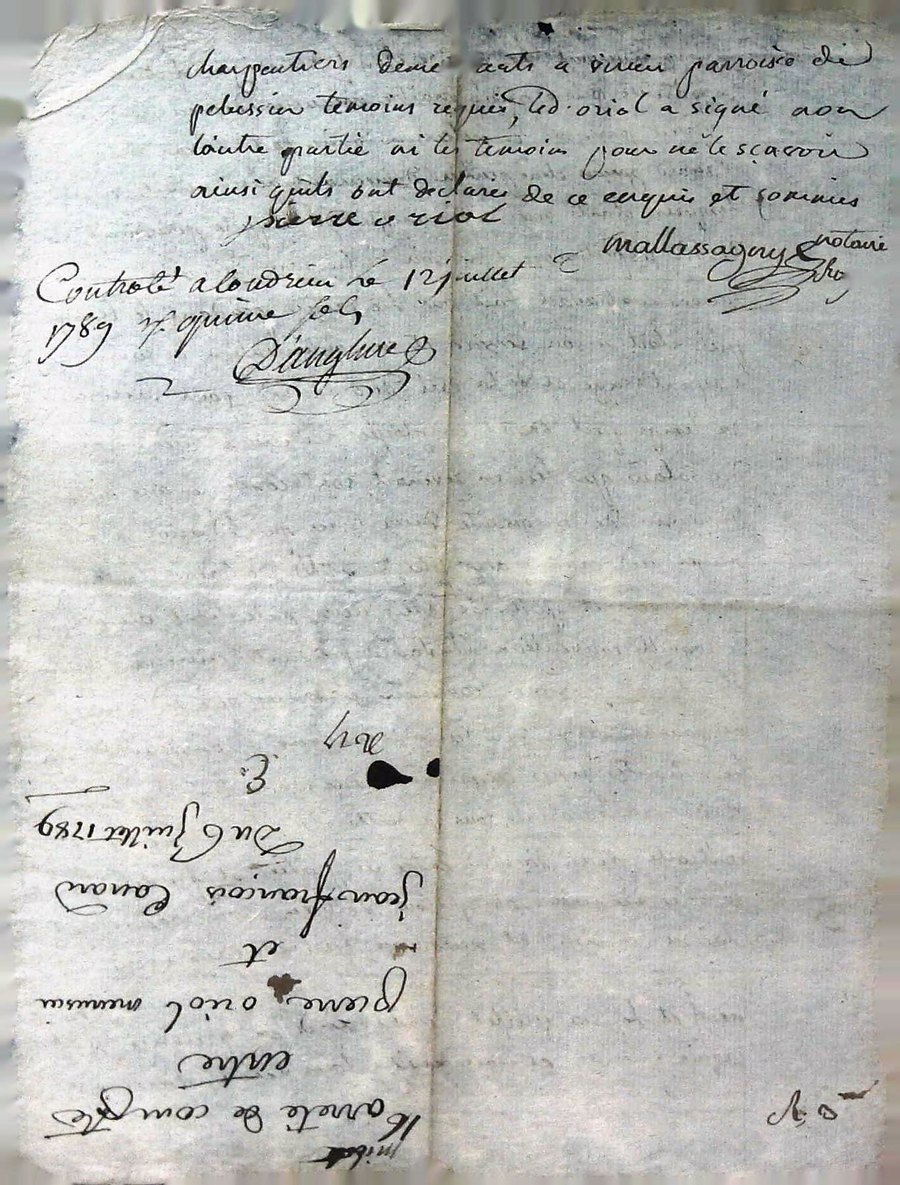 charpentiers demeurants a virieu parroisse de
pelussin temoins requis, led. oriol a signé non
lautre partie ni les temoins pour ne le sçavoir
ainsi quils ont declaré de ce enquis et sommés
pierre oriol
mallassagny notaire
Controlé a Condrieu le 12 juillet
1789 r/ quinze sols
D'anglure
arreté de comptes
entre
pierre oriol menuisier
et
jean françois Canard
Du 6 juillet 1789